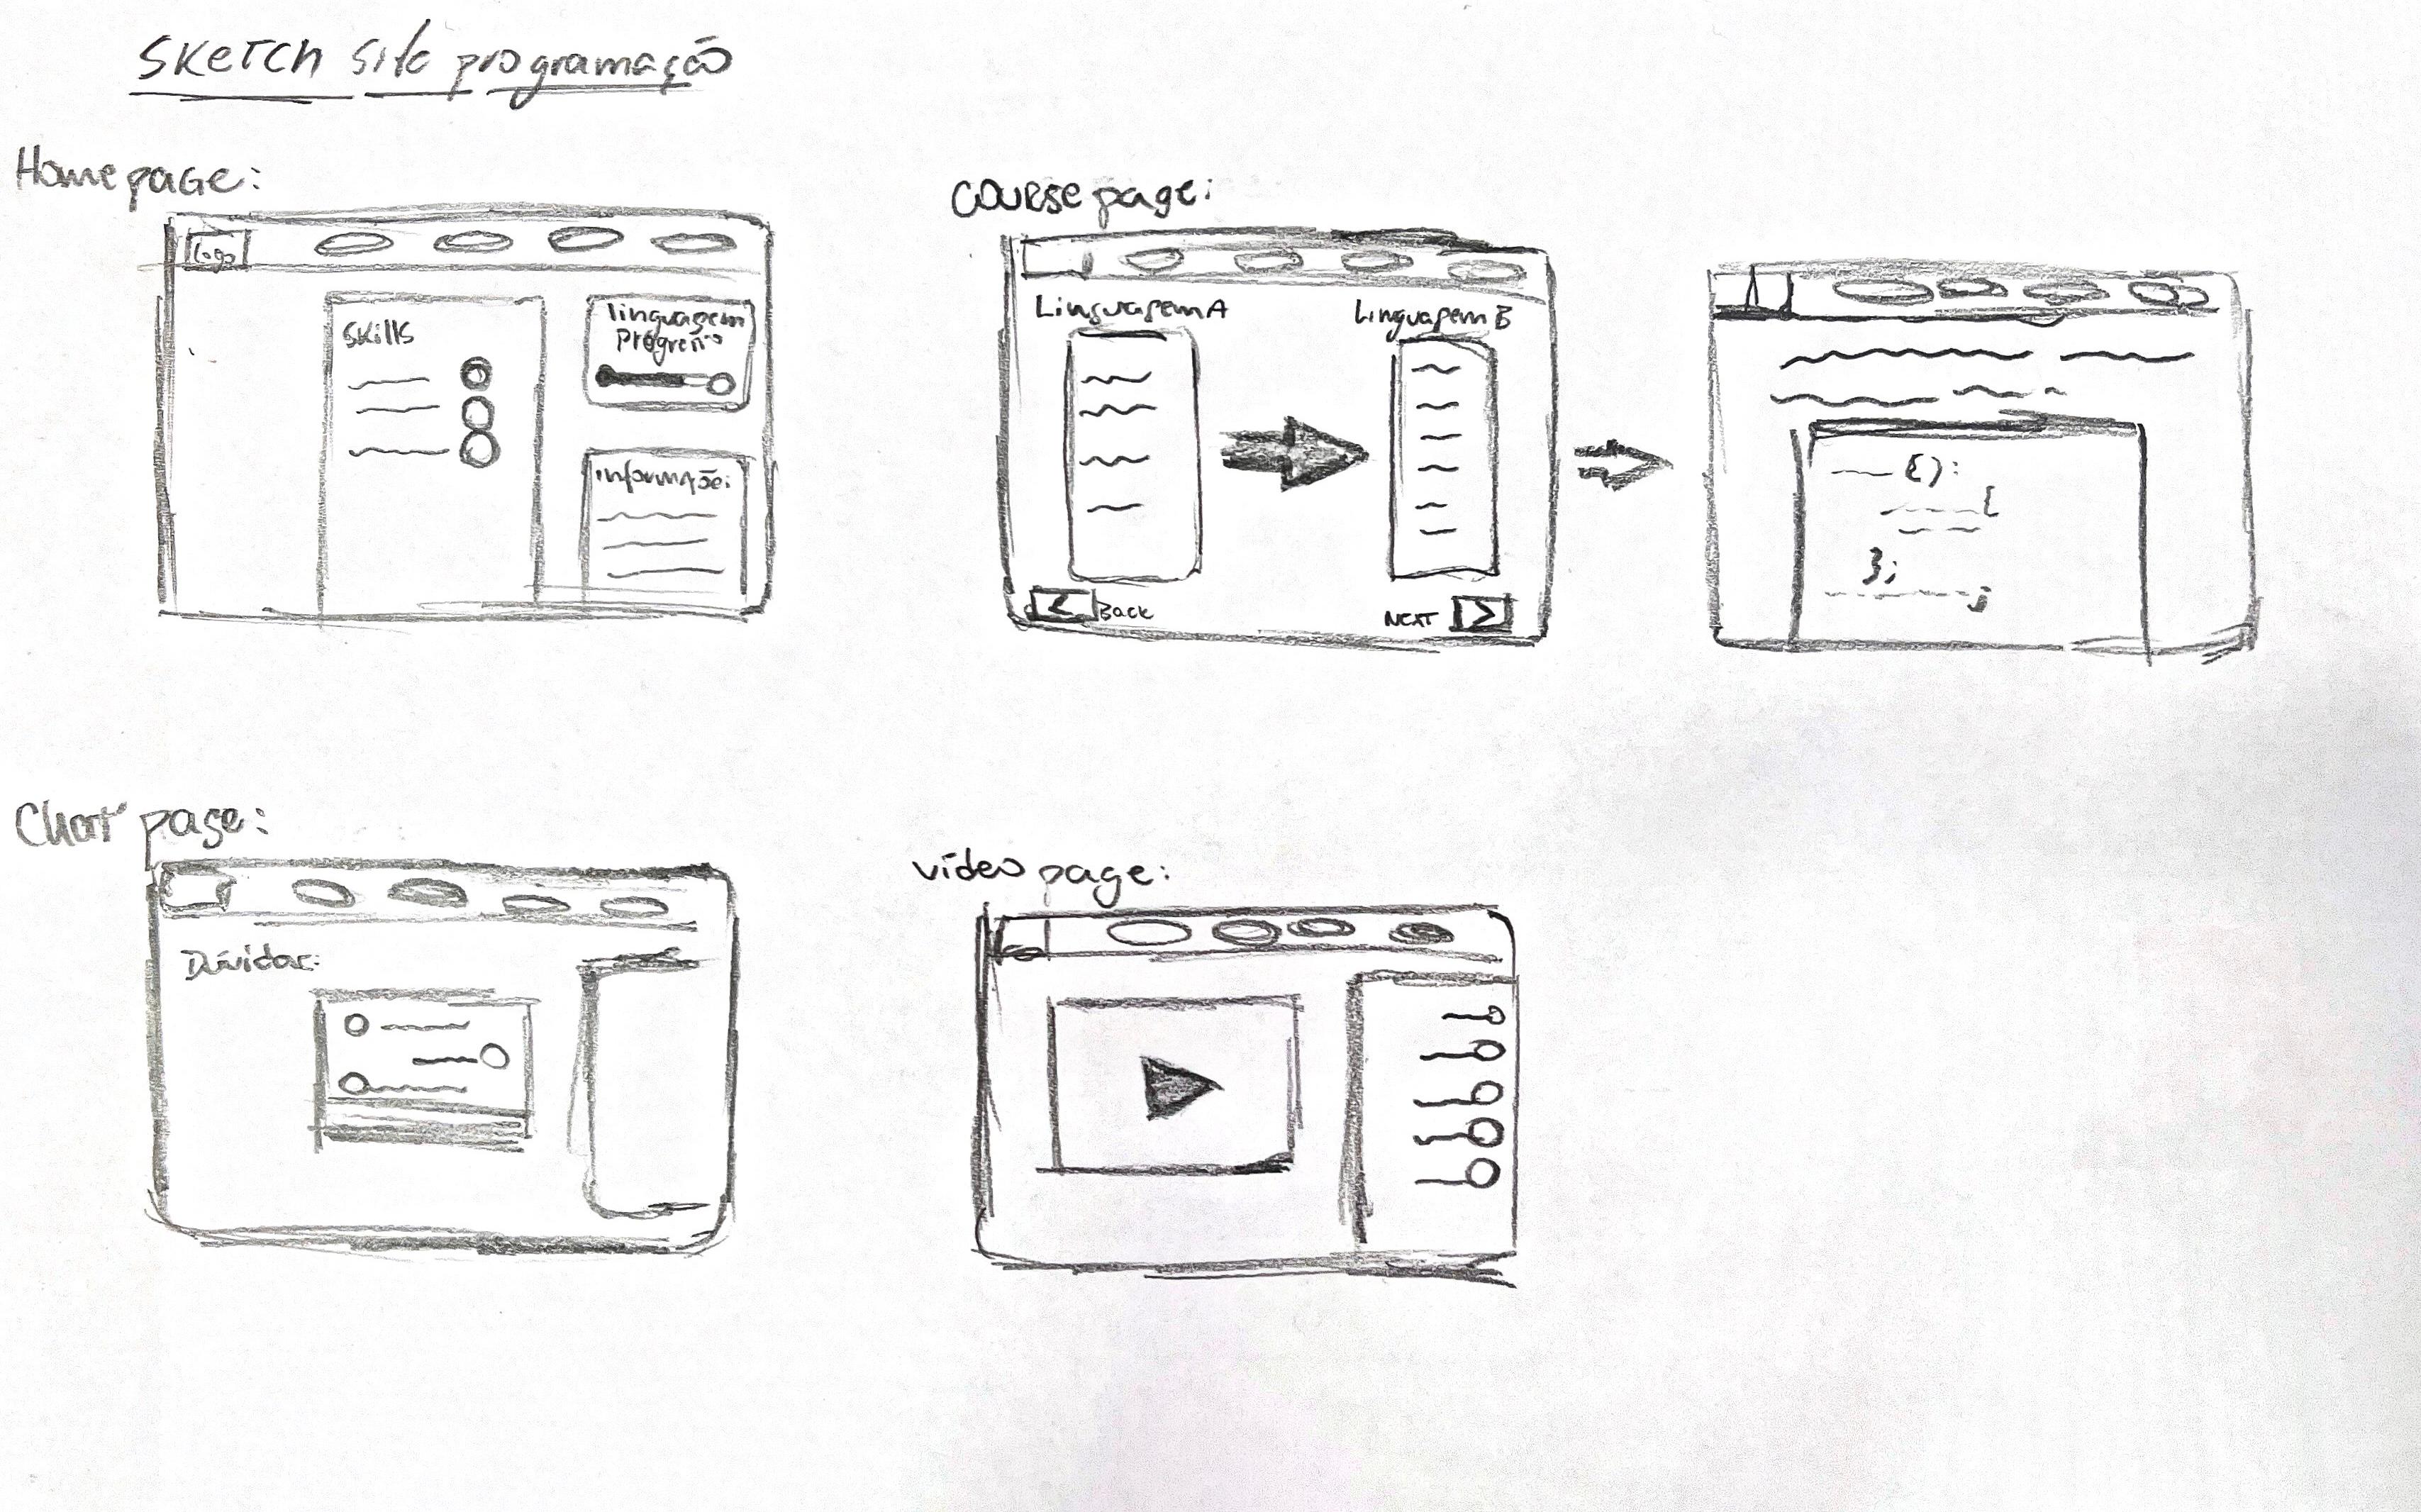 Sketch site programação
Home page:
Logo
Skills
linguagem
Progresso
informações
Course page:
Linguagem A
Linguagem B
Back
NEXT
{):
{
};
;
Chat page:
Dúvidas:
vídeo page: